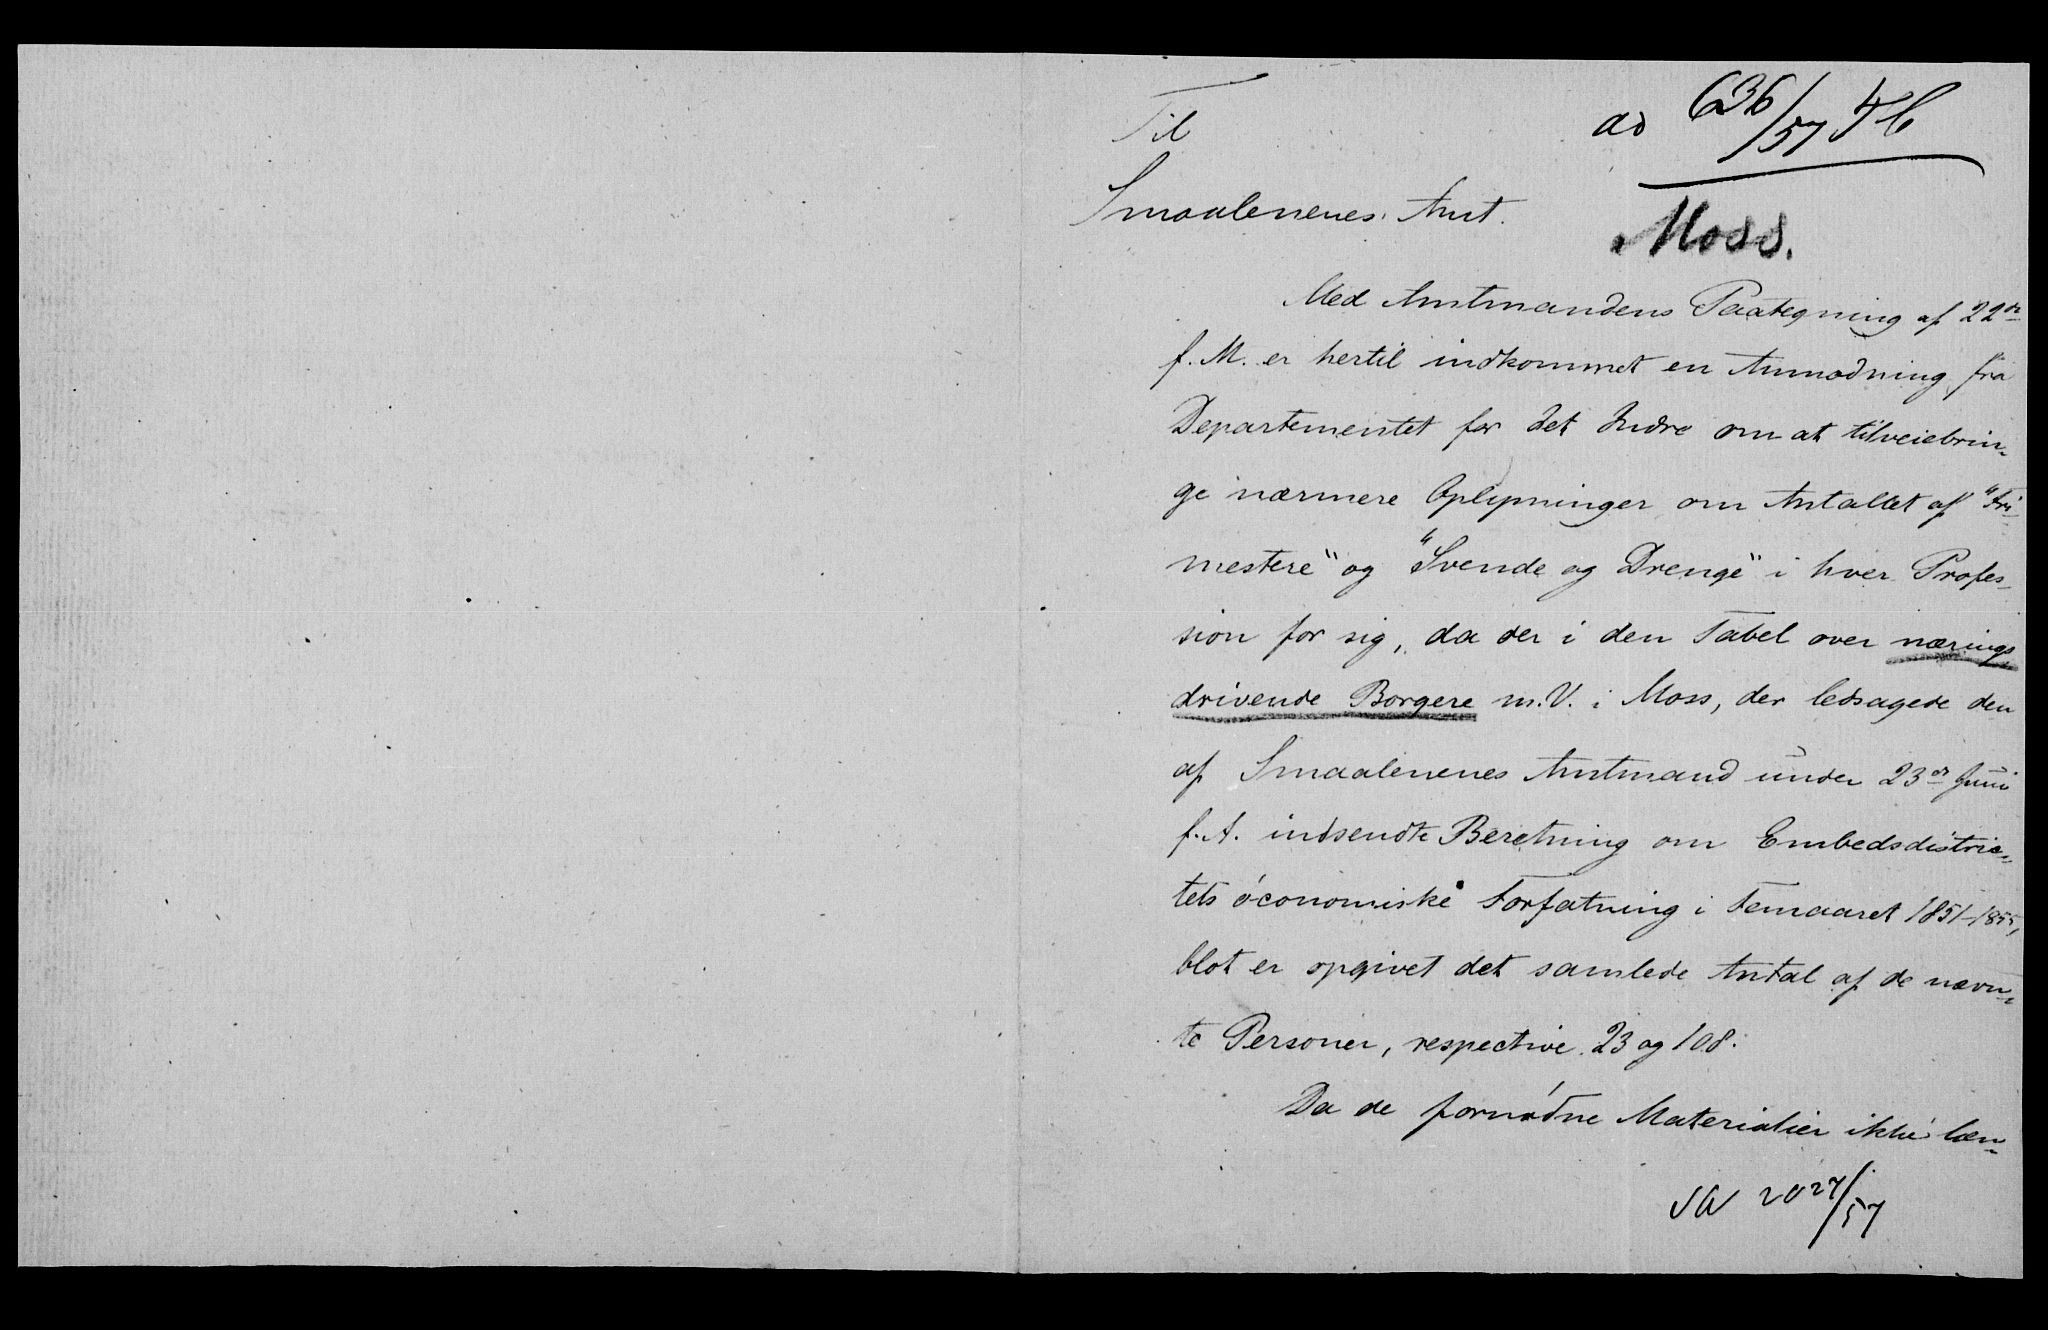 Til
ad 636/57 4b
Smaalenenes Amt.
Moss.
Med Amtmandens Paategning af 22de
f. M. er hertil indkommet en Anmodning fra
Departementet for det Indre om at tilveiebrin-
ge nærmere Oplysninger om Antallet af "Fri-
mestere" og "Svende og Drenge" i hver Profes-
sion for sig, da der i den Tabel over nærings
drivende Borgere m. V. i Moss, der ledsagede den
af Smaalenenes Amtmand under 23de Juni
f. A. indsendte Beretning om Embedsdistric-
tets öconomiske Forfatning i Femaaret 1851-1855,
blot er opgivet det samlede Antal af de nævn-
te Personer, respective 23 og 108.
Da de fornødne Materialier ikke læn-
2027/57